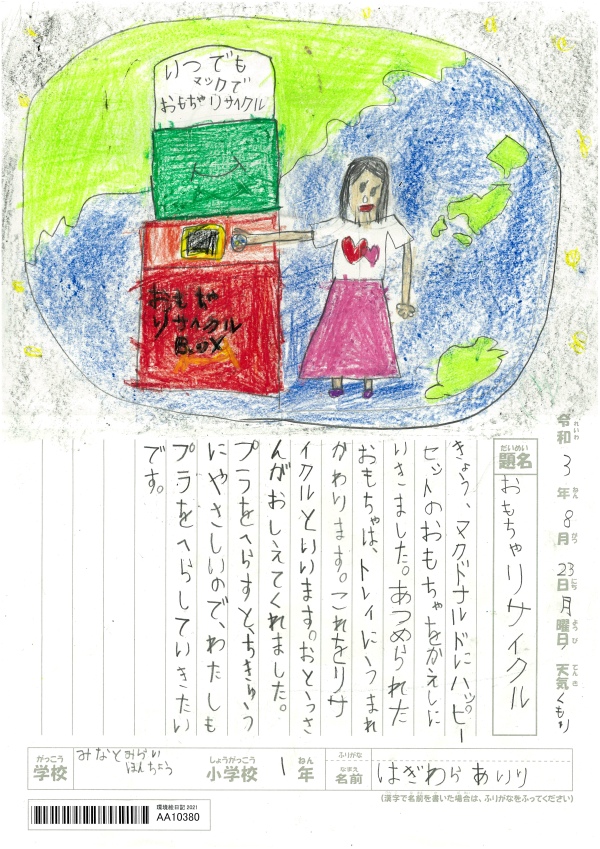 いつでも
マックで
おもちゃリサイクル
おもちゃ
リサイクル
BOX
令和3年8月23日月曜日 天気くもり
れいわ ねん がつ にち ようび てんき
だいめい
題名
おもちゃリサイクル
きょう、マクドナルドにハッピー
セットのおもちゃをかえしに
いきました。あつめられた
おもちゃは、トレイにうまれ
かわります。これをリサ
イクルといいます。おとうさ
んがおしえてくれました。
プラをへらすと、ちきゅう
にやさしいので、わたしも
プラをへらしていきたい
です。
がっこう
学校
みなとみらい
ほんちょう
しょうがっこう
小学校
1
ねん
年
ふりがな
なまえ
名前
はぎわら
(漢字で名前を書いた場合は、ふりがなをふってください)
環境絵日記 2021
AA10380